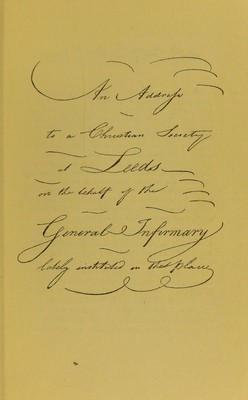 An Address
to a Christian Society
at Leeds
on the behalf of the
General Infirmary
lately instituted in that place